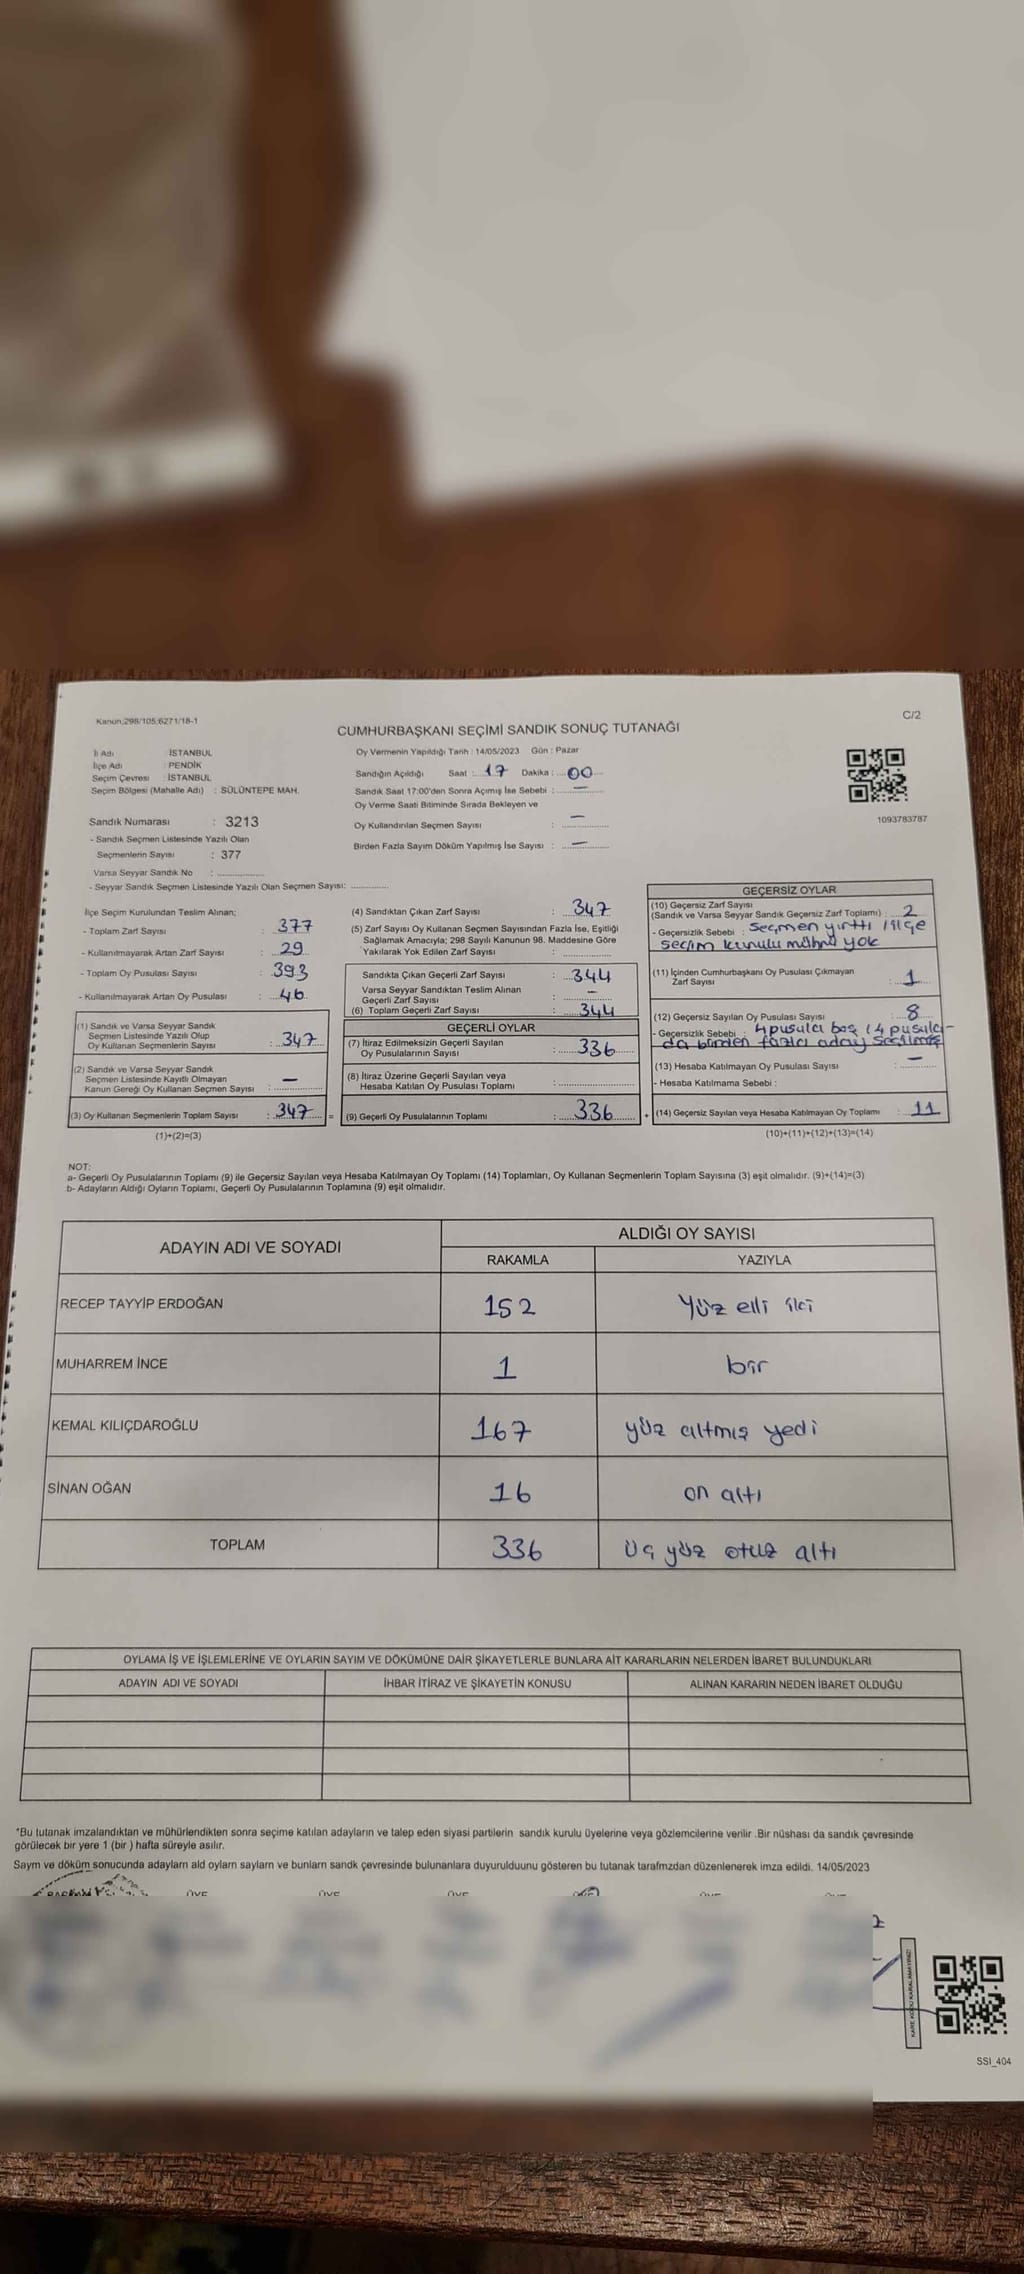 Kanun;298/105;6271/18-1
C/2
CUMHURBAŞKANI SEÇİMİ SANDIK SONUÇ TUTANAĞI
İl Adı : İSTANBUL
İlçe Adı : PENDİK
Seçim Çevresi : İSTANBUL
Seçim Bölgesi (Mahalle Adı) : SÜLÜNTEPE MAH.
Sandık Numarası : 3213
- Sandık Seçmen Listesinde Yazılı Olan
Seçmenlerin Sayısı : 377
Varsa Seyyar Sandık No :
- Seyyar Sandık Seçmen Listesinde Yazılı Olan Seçmen Sayısı:
Oy Vermenin Yapıldığı Tarih : 14/05/2023 Gün : Pazar
Sandığın Açıldığı Saat : 17 Dakika : 00
Sandık Saat 17:00'den Sonra Açımış İse Sebebi : —
Oy Verme Saati Bitiminde Sırada Bekleyen ve
Oy Kullandırılan Seçmen Sayısı : —
Birden Fazla Sayım Döküm Yapılmış İse Sayısı : —
1093783787
İlçe Seçim Kurulundan Teslim Alınan;
- Toplam Zarf Sayısı : 377
- Kullanılmayarak Artan Zarf Sayısı : 29
- Toplam Oy Pusulası Sayısı : 393
- Kullanılmayarak Artan Oy Pusulası : 46
(1) Sandık ve Varsa Seyyar Sandık
Seçmen Listesinde Yazılı Olup
Oy Kullanan Seçmenlerin Sayısı : 347
(2) Sandık ve Varsa Seyyar Sandık
Seçmen Listesinde Kayıtlı Olmayan
Kanun Gereği Oy Kullanan Seçmen Sayısı : —
(3) Oy Kullanan Seçmenlerin Toplam Sayısı : 347 =
(1)+(2)=(3)
(4) Sandıktan Çıkan Zarf Sayısı : 347
(5) Zarf Sayısı Oy Kullanan Seçmen Sayısından Fazla İse, Eşitliği
Sağlamak Amacıyla; 298 Sayılı Kanunun 98. Maddesine Göre
Yakılarak Yok Edilen Zarf Sayısı :
Sandıkta Çıkan Geçerli Zarf Sayısı : 344
Varsa Seyyar Sandıktan Teslim Alınan
Geçerli Zarf Sayısı : —
(6) Toplam Geçerli Zarf Sayısı : 344
GEÇERLİ OYLAR
(7) İtiraz Edilmeksizin Geçerli Sayılan
Oy Pusulalarının Sayısı : 336
(8) İtiraz Üzerine Geçerli Sayılan veya
Hesaba Katılan Oy Pusulası Toplamı :
(9) Geçerli Oy Pusulalarının Toplamı : 336 +
GEÇERSİZ OYLAR
(10) Geçersiz Zarf Sayısı
(Sandık ve Varsa Seyyar Sandık Geçersiz Zarf Toplamı) : 2
- Geçersizlik Sebebi : Seçmen yırttı / ilçe
seçim kurulu mührü yok
(11) İçinden Cumhurbaşkanı Oy Pusulası Çıkmayan
Zarf Sayısı : 1
(12) Geçersiz Sayılan Oy Pusulası Sayısı : 8
- Geçersizlik Sebebi : 4 pusula boş / 4 pusula-
da birden fazla aday seçilmiş
(13) Hesaba Katılmayan Oy Pusulası Sayısı : —
- Hesaba Katılmama Sebebi :
(14) Geçersiz Sayılan veya Hesaba Katılmayan Oy Toplamı : 11
(10)+(11)+(12)+(13)=(14)
NOT:
a- Geçerli Oy Pusulalarının Toplamı (9) ile Geçersiz Sayılan veya Hesaba Katılmayan Oy Toplamı (14) Toplamları, Oy Kullanan Seçmenlerin Toplam Sayısına (3) eşit olmalıdır. (9)+(14)=(3)
b- Adayların Aldığı Oyların Toplamı, Geçerli Oy Pusulalarının Toplamına (9) eşit olmalıdır.
ADAYIN ADI VE SOYADI
ALDIĞI OY SAYISI
RAKAMLA YAZIYLA
RECEP TAYYİP ERDOĞAN 152 Yüz elli iki
MUHARREM İNCE 1 bir
KEMAL KILIÇDAROĞLU 167 yüz altmış yedi
SİNAN OĞAN 16 on altı
TOPLAM 336 üç yüz otuz altı
OYLAMA İŞ VE İŞLEMLERİNE VE OYLARIN SAYIM VE DÖKÜMÜNE DAİR ŞİKAYETLERLE BUNLARA AİT KARARLARIN NELERDEN İBARET BULUNDUKLARI
ADAYIN ADI VE SOYADI İHBAR İTİRAZ VE ŞİKAYETİN KONUSU ALINAN KARARIN NEDEN İBARET OLDUĞU
*Bu tutanak imzalandıktan ve mühürlendikten sonra seçime katılan adayların ve talep eden siyasi partilerin sandık kurulu üyelerine veya gözlemcilerine verilir .Bir nüshası da sandık çevresinde
görülecek bir yere 1 (bir ) hafta süreyle asılır.
Saym ve döküm sonucunda adaylarn ald oylarn saylarn ve bunlarn sandk çevresinde bulunanlara duyurulduunu gösteren bu tutanak tarafmzdan düzenlenerek imza edildi. 14/05/2023
KARE KODU KARALAMAYINIZ!
SSI_404